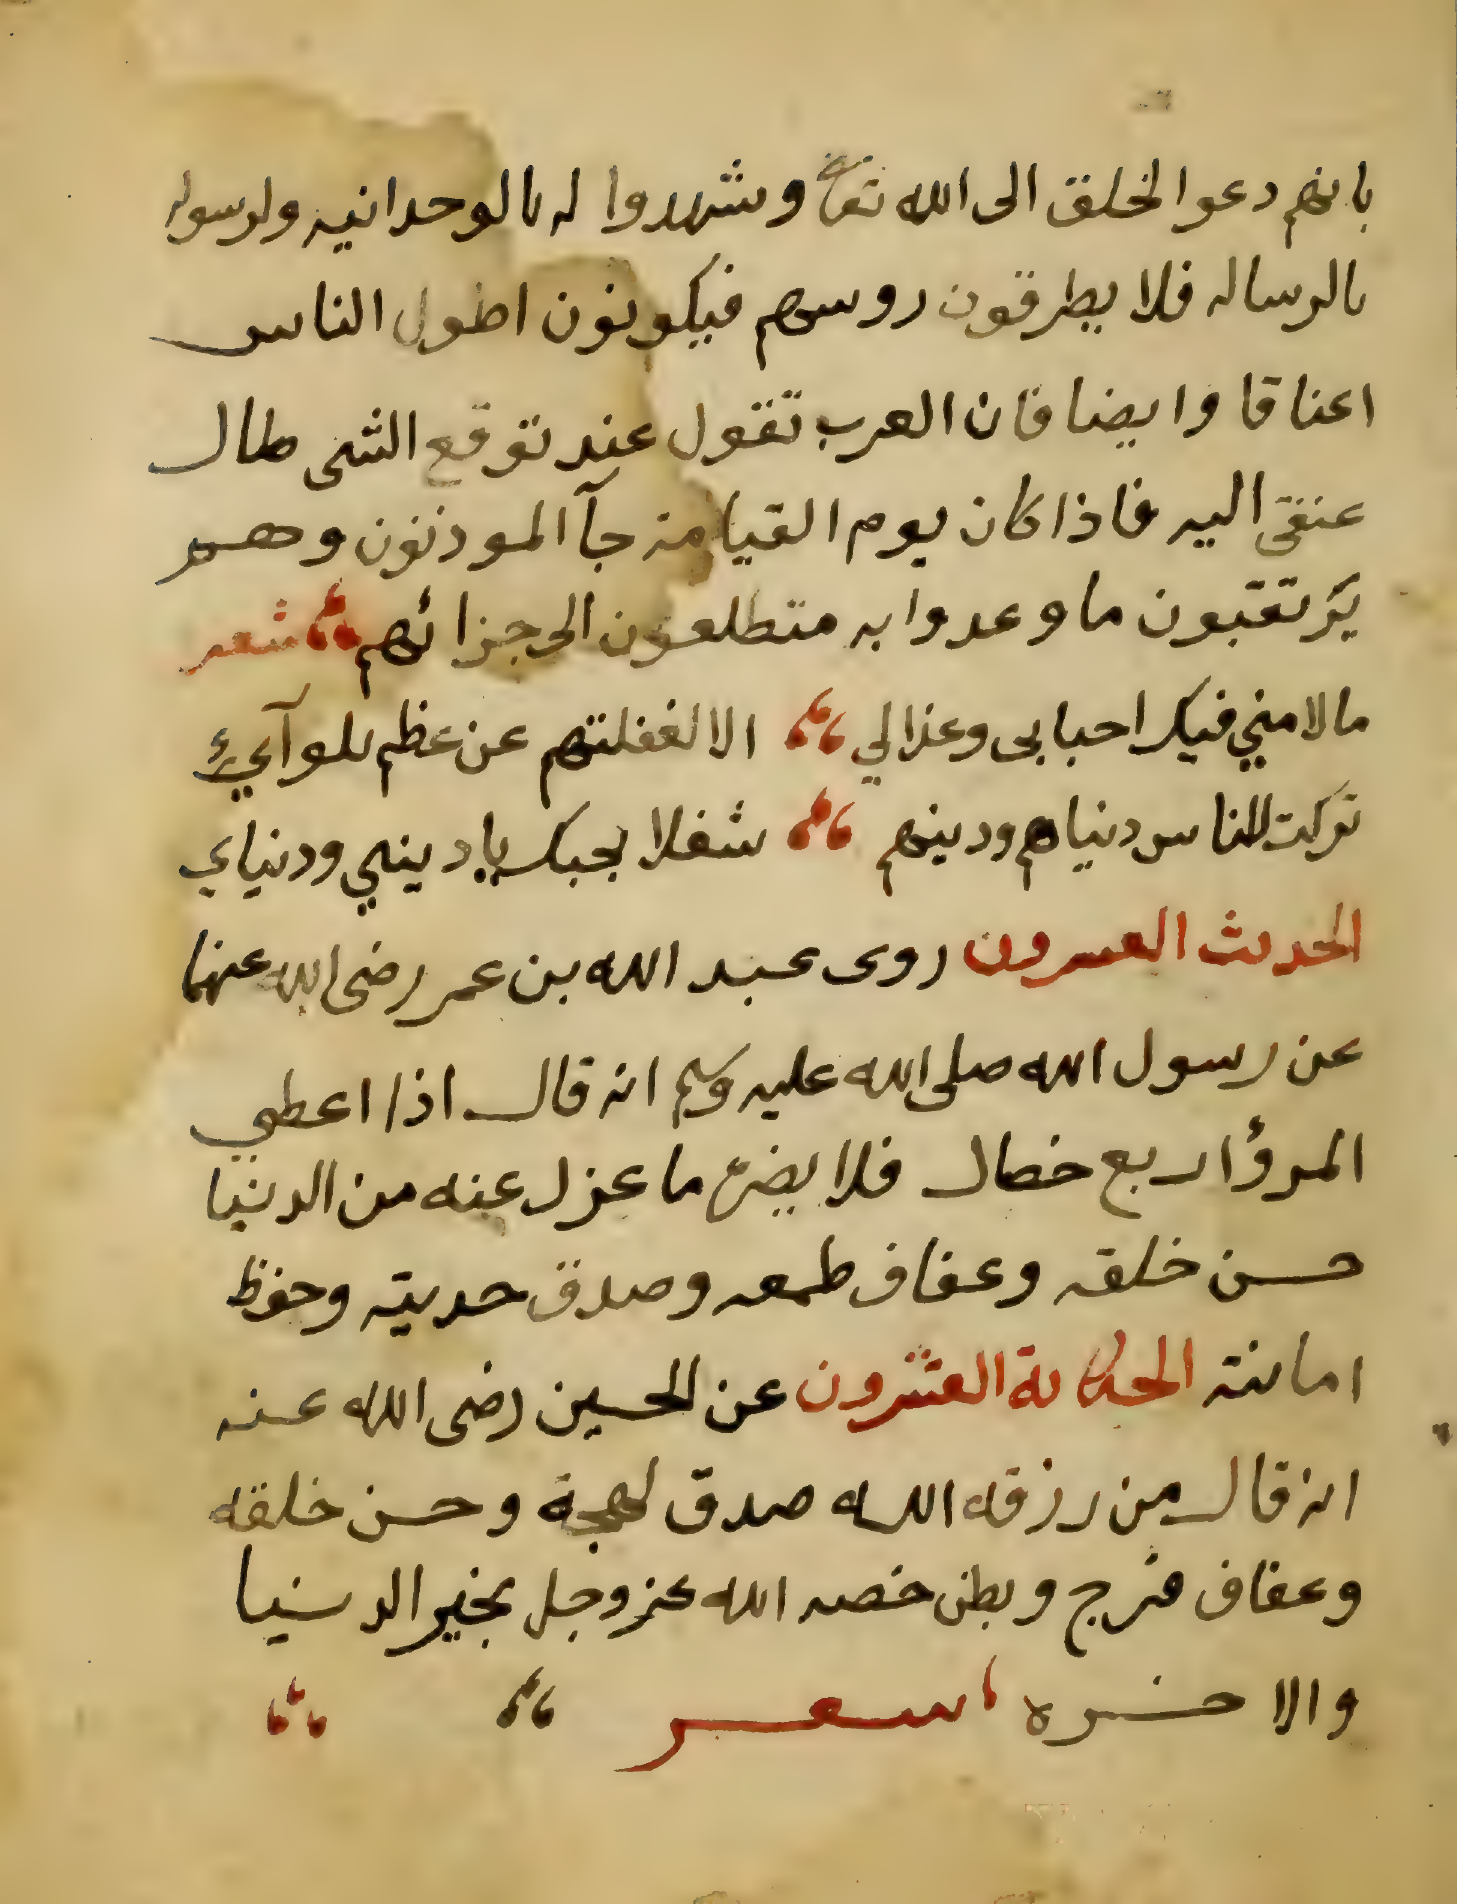 بانهم دعوا الخلق الى الله تعالى وشهدوا له بالوحدانيه ولرسوله
بالرساله فلا يطرقون روسهم فيكونون اطول الناس
اعناقا وايضا فان العرب تقول عند توقع الشى طال
عنقى اليه فاذا كان يوم القيامة جآ الموذنون وهم
يرتقبون ما وعدوا به متطلعون الى جزائهم شعر
ما لامني فيك احبابى وعذالي الا لغفلتهم عن عظم بلوآيئ
تركت للناس دنياهم ودينهم شغلا بحبك يا ديني ودنياي
الحديث العشرون روى عبد الله بن عمر رضى الله عنهما
عن رسول الله صلى الله عليه وسلم انه قال اذا اعطي
المرؤ اربع خصال فلا يضره ما عزل عنه من الدنيا
حسن خلقه وعفاف طمعه وصدق حديثه وحفظ
امانته الحكاية العشرون عن الحسين رضى الله عنه
انه قال من رزقه الله صدق لهجة وحسن خلقه
وعفاف فرج وبطن خصه الله عز وجل بخير الدنيا
والاخره شعر